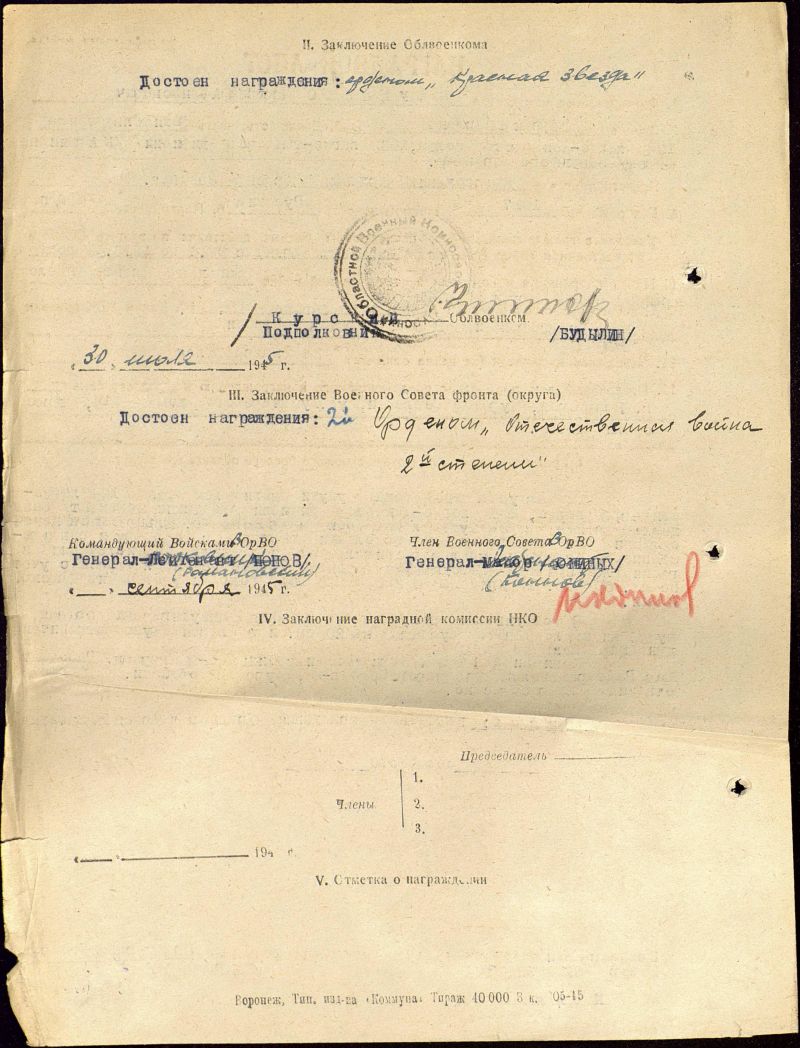 II. Заключение Облвоенкома
Достоен награждения: орденом „Красная звезда"
Областной Военный
Курский Облвоенком
Подполковник /БУДЫЛИН/
„30" июля 1945 г.
III. Заключение Военного Совета фронта (округа)
Достоен награждения: Орденом „Отечественная война
2й степени"
Командующий Войсками ВОрВО
Генерал-Лейтенант /ПОПОВ/
(Романовский)
Член Военного Совета ВОрВО
Генерал-майор
„ " сентября 1945 г.
IV. Заключение наградной комиссии НКО
Председатель
Члены
1.
2.
3.
„ " 194 г.
V. Отметка о награждении
Воронеж, Тип. изд-ва «Коммуна» Тираж 40 000 З к. 05-45